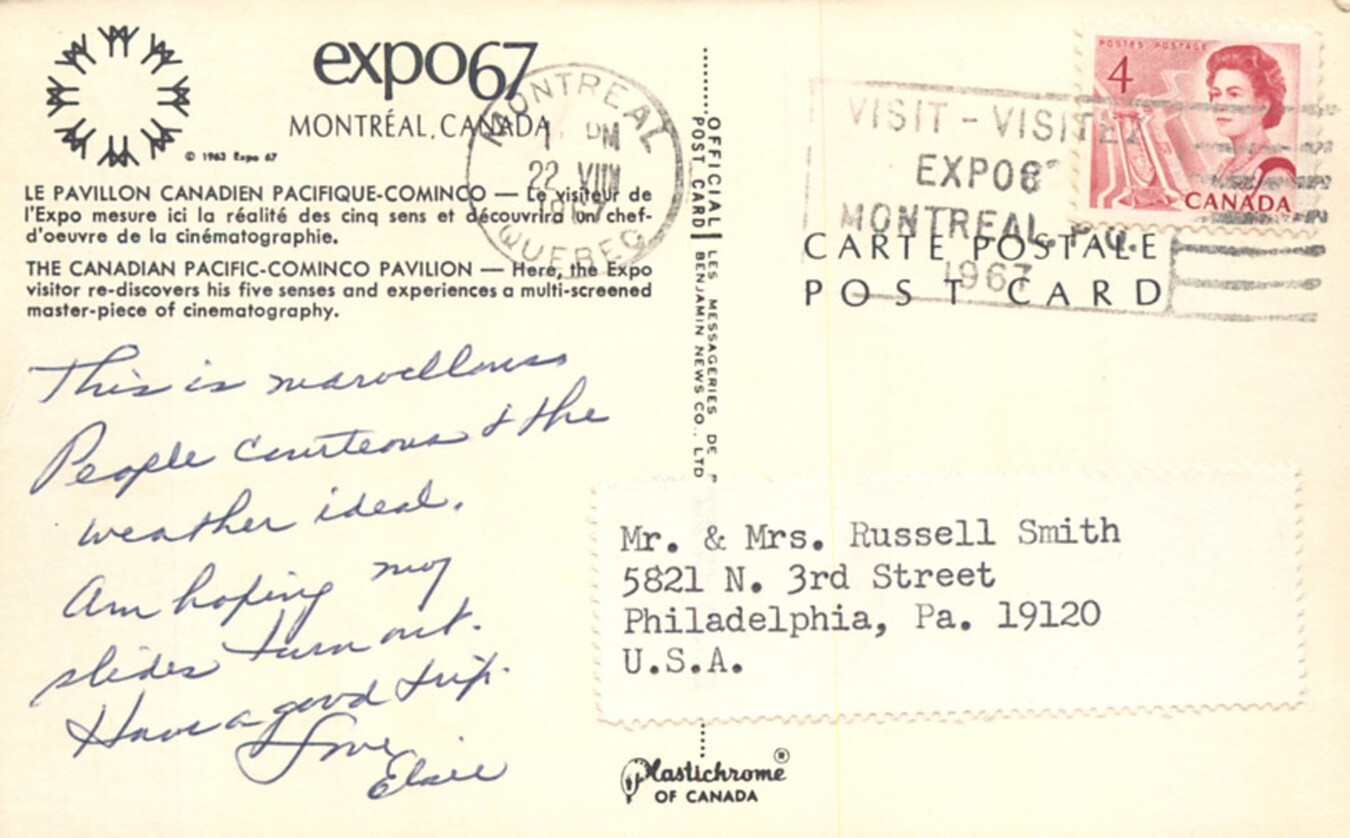 expo67
MONTRÉAL, CANADA
© 1963 Expo 67
LE PAVILLON CANADIEN PACIFIQUE-COMINCO — Le visiteur de
l'Expo mesure ici la réalité des cinq sens et découvrira un chef-
d'oeuvre de la cinématographie.
THE CANADIAN PACIFIC-COMINCO PAVILION — Here, the Expo
visitor re-discovers his five senses and experiences a multi-screened
master-piece of cinematography.
This is marvellous
People courteous & the
weather ideal.
Am hoping my
slides turn out.
Have a good trip.
Love,
Elsie
MONTREAL
PM
22 VIII
QUEBEC
OFFICIAL LES MESSAGERIES DE P
POST CARD BENJAMIN NEWS CO., LTD
POSTES POSTAGE
4
CANADA
VISIT - VISITEZ
EXPO67
MONTREAL, P.Q.
1967
CARTE POSTALE
POST CARD
Mr. & Mrs. Russell Smith
5821 N. 3rd Street
Philadelphia, Pa. 19120
U.S.A.
Plastichrome®
OF CANADA